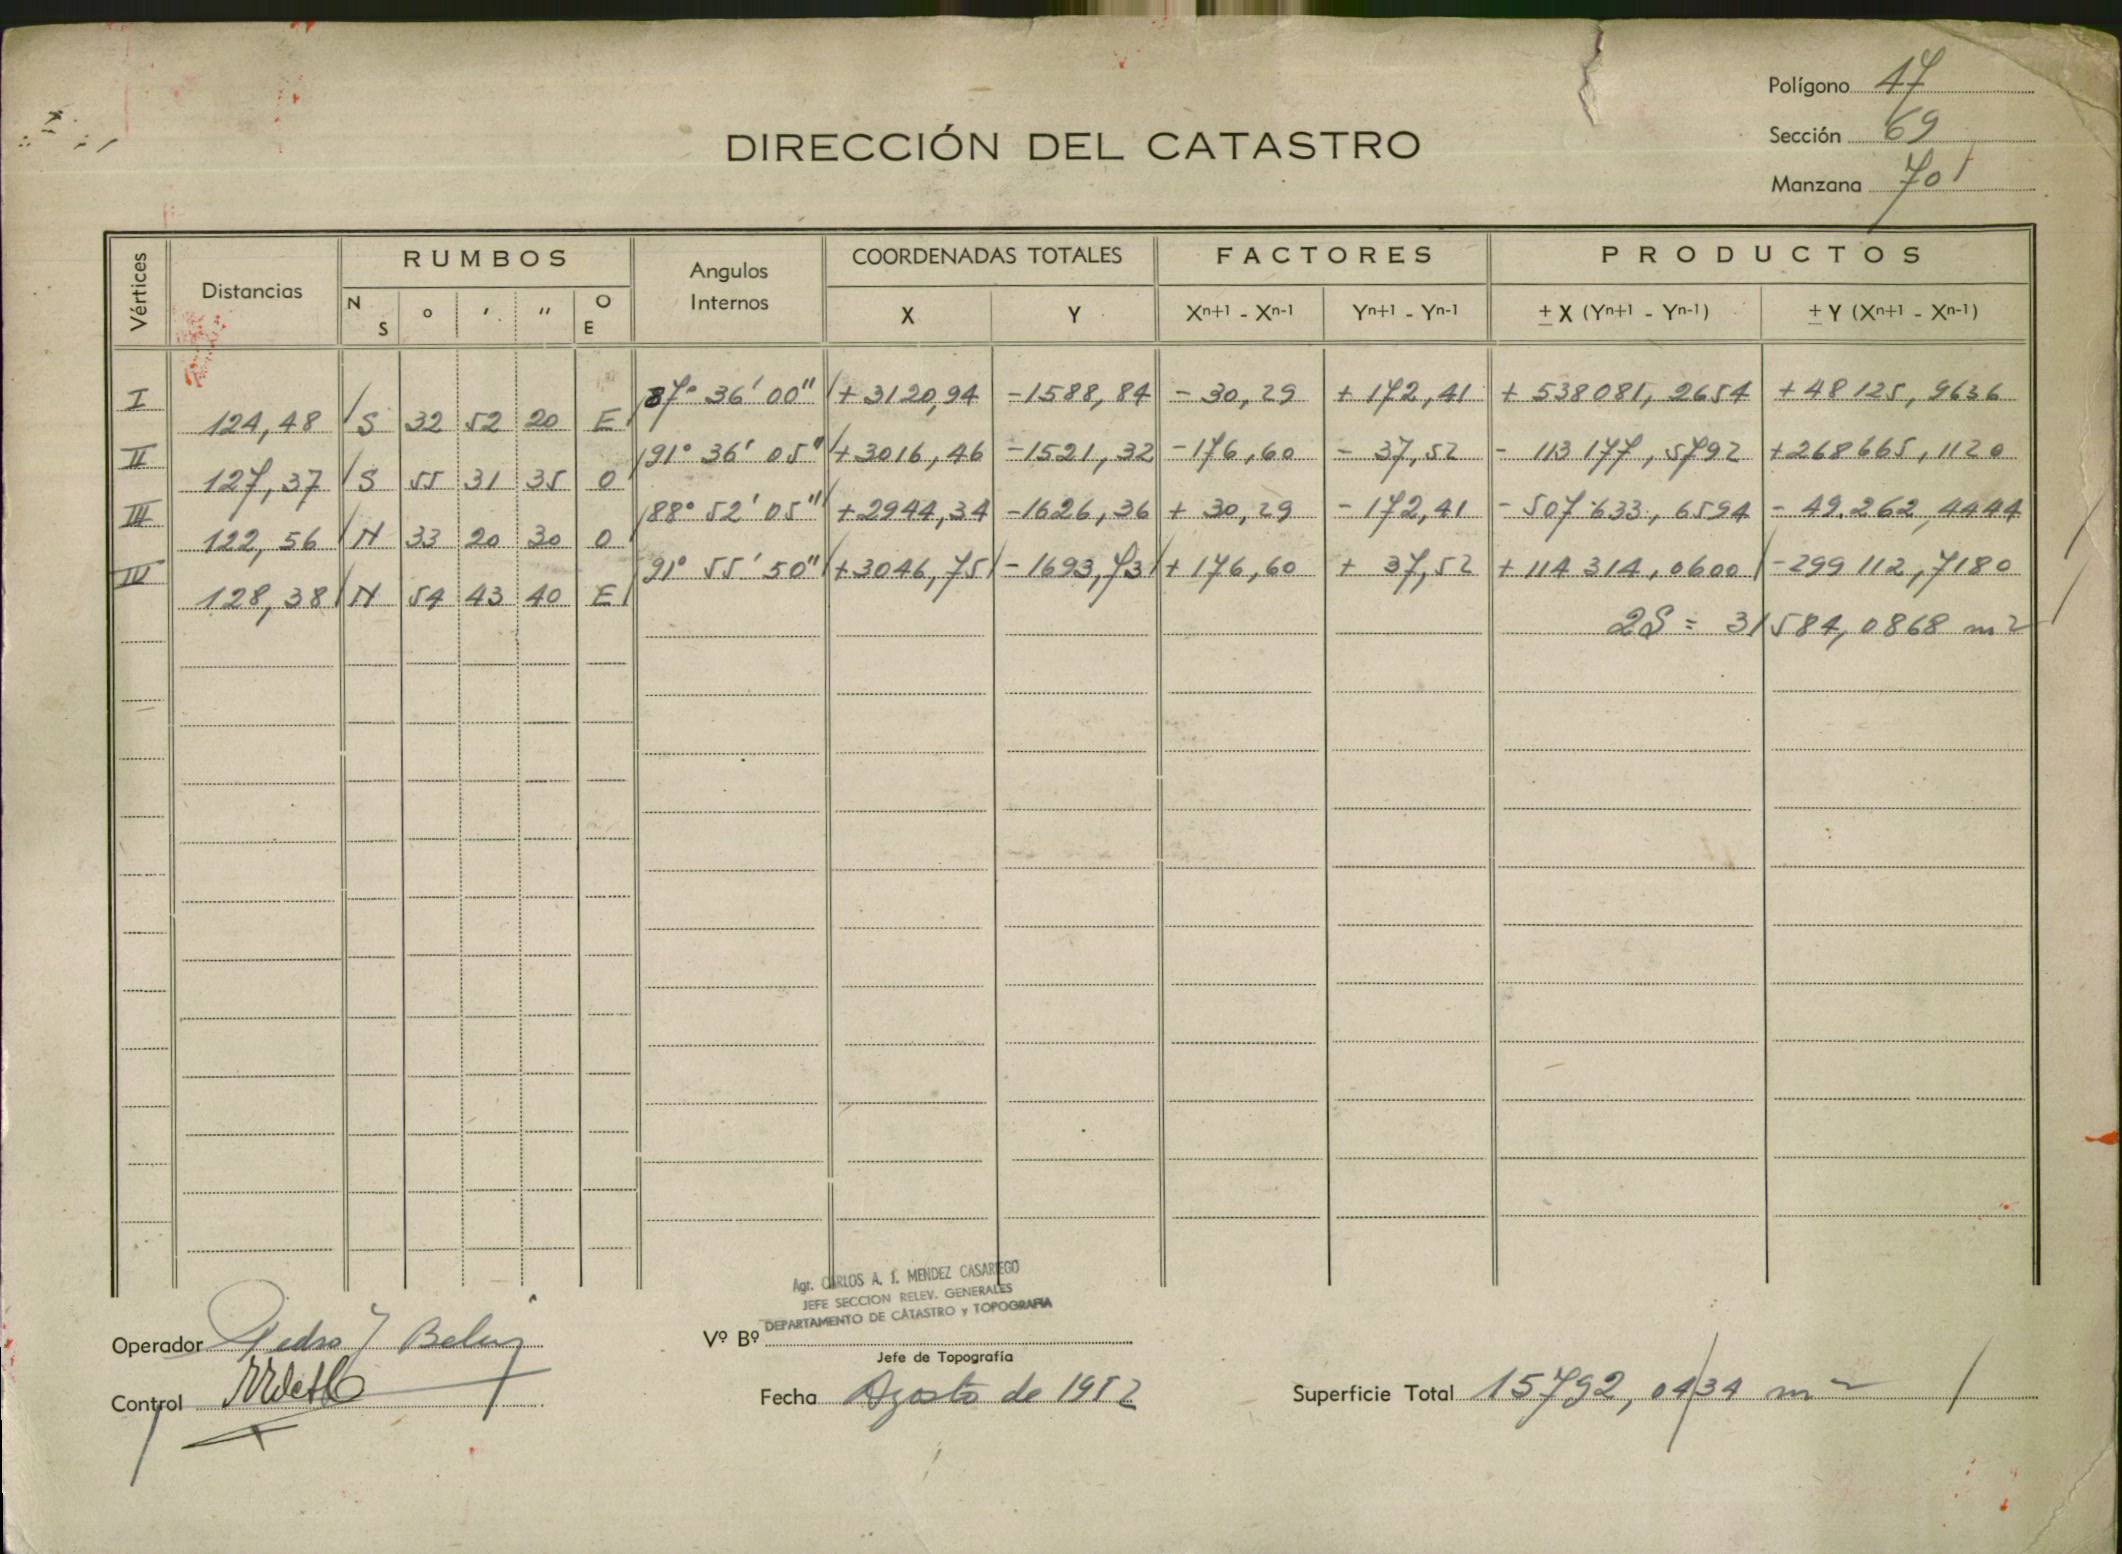 Polígono 47
DIRECCIÓN DEL CATASTRO
Sección 69
Manzana 701
Vértices Distancias RUMBOS Angulos Internos COORDENADAS TOTALES FACTORES PRODUCTOS
N S ° ' " O E X Y Xn+1 - Xn-1 Yn+1 - Yn-1 ± X (Yn+1 - Yn-1) ± Y (Xn+1 - Xn-1)
I 87° 36' 00" +3120,94 -1588,84 - 30,29 + 172,41 + 538081,2654 +48125,9636
124,48 S 32 52 20 E
II 91° 36' 05" +3016,46 -1521,32 -176,60 - 37,52 - 113177,5792 +268665,1120
127,37 S 55 31 35 O
III 88° 52' 05" +2944,34 -1626,36 + 30,29 - 172,41 - 507.633,6594 - 49.262,4444
122,56 N 33 20 30 O
IV 91° 55' 50" +3046,75 -1693,73 + 176,60 + 37,52 + 114314,0600 -299112,7180
128,38 N 54 43 40 E
2S = 31584,0868 m2
Agr. CARLOS A. I. MENDEZ CASARIEGO
JEFE SECCION RELEV. GENERALES
DEPARTAMENTO DE CATASTRO y TOPOGRAFIA
Operador Pedro J
Vº Bº
Jefe de Topografía
Control
Fecha Agosto de 1952
Superficie Total 15792,0434 m2